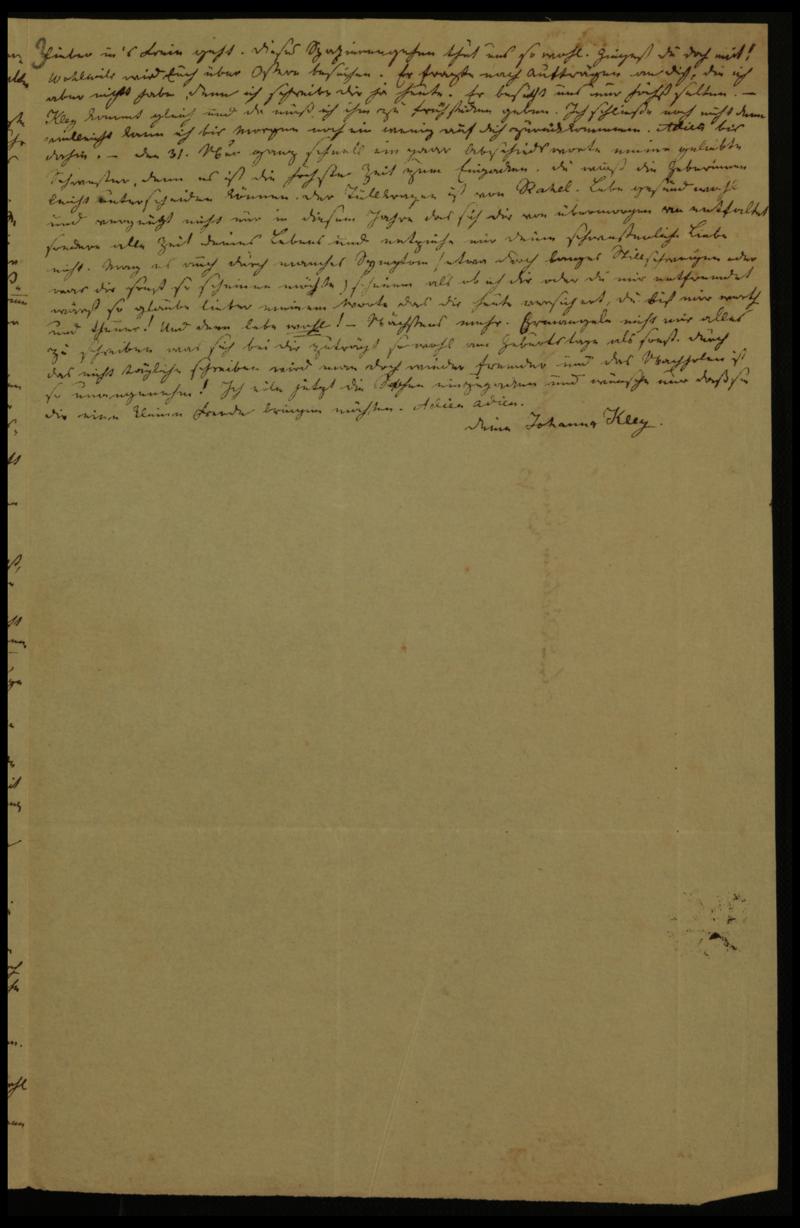 3
lieber in's Freie geht. Dieses Spazierengehen thut uns so wohl. Giengest du doch mit!
Wohlwill wird Euch über Ostern besuchen. Er fragte nach Aufträgen an dich, die ich
aber nicht habe, denn ich schreibe dir ja heute. Er besucht uns nur höchst selten. –
Kley kommt gleich und da muß ich ihm zu frühstücken geben. Ich schließe noch nicht denn
vielleicht kann ich bis morgen noch ein wenig auf dich zurückkommen. Adieu bis
dahin. – den 31. Nur ganz schnell ein paar Abschiedsworte meine geliebte
Schwester, denn es ist die höchste Zeit zum Einpacken. Du mußt die Geberinnen
leicht unterscheiden können. Der Tüllkragen ist von Rahel. Lebe gesund wohl
und vergnügt nicht nur in diesem Jahre das sich dir von übermorgen an entfaltet
sondern alle Zeit deines Lebens und entziehe mir deine schwesterliche Liebe
nicht. Mag es auch durch manches Symptom (etwa durch langes Stillschweigen oder
was dir sonst so scheinen möchte) scheinen als ob ich dir oder du mir entfremdet
wärst so glaube lieber meinem Worte das dir heute versichert, du bist mir werth
und theuer! Und dann lebe wohl! – Nächstens mehr. Ermangele nicht mir alles
zu schreiben was sich bei dir zuträgt sowohl am Geburtstage als sonst. Durch
das nicht tägliche schreiben wird man doch wieder fremder und das Nachholen ist
so unangenehm! Ich eile jetzt die Sachen einzupacken und wünsche nur daß sie
dir eine kleine Freude bringen möchten. Adieu adieu.
deine Johanna Kley.